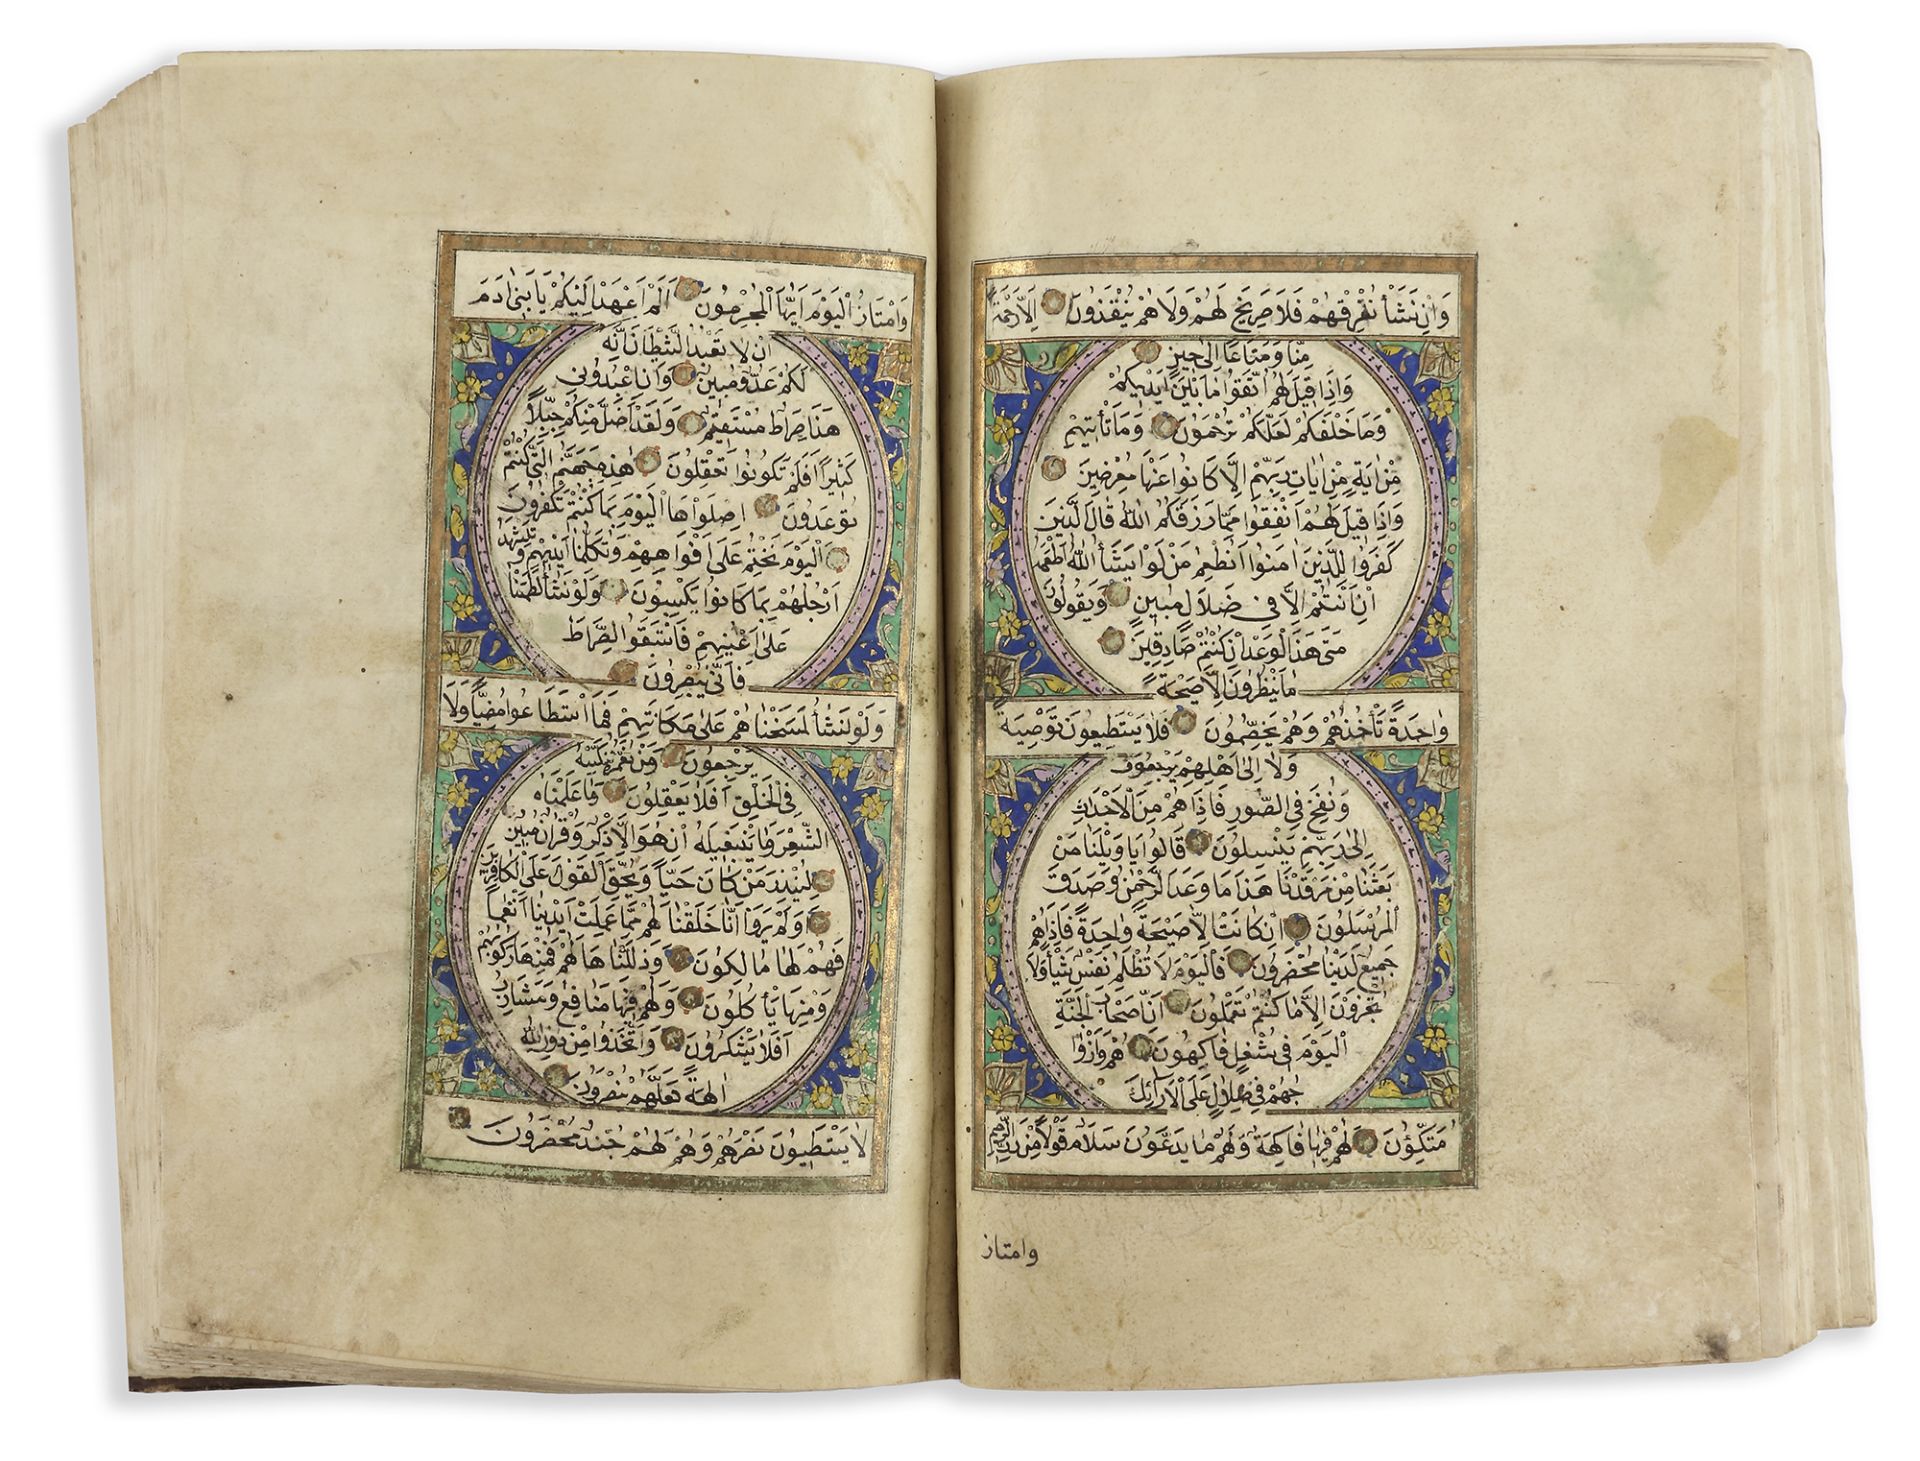 وَاِنْ نَشَأْ نُغْرِقْهُمْ فَلَا صَرِيخَ لَهُمْ وَلَا هُمْ يُنْقَذُونَ اِلَّا رَحْمَةً
مِنَّا وَمَتَاعًا اِلٰى حِينٍ
وَاِذَا قِيلَ لَهُمُ اتَّقُوا مَا بَيْنَ اَيْدِيكُمْ
وَمَا خَلْفَكُمْ لَعَلَّكُمْ تُرْحَمُونَ وَمَا تَأْتِيهِمْ
مِنْ اٰيَةٍ مِنْ اٰيَاتِ رَبِّهِمْ اِلَّا كَانُوا عَنْهَا مُعْرِضِينَ
وَاِذَا قِيلَ لَهُمْ اَنْفِقُوا مِمَّا رَزَقَكُمُ اللّٰهُ قَالَ الَّذِينَ
كَفَرُوا لِلَّذِينَ اٰمَنُوا اَنُطْعِمُ مَنْ لَوْ يَشَاُ اللّٰهُ اَطْعَمَهُ
اِنْ اَنْتُمْ اِلَّا فِي ضَلَالٍ مُبِينٍ وَيَقُولُونَ
مَتٰى هٰذَا الْوَعْدُ اِنْ كُنْتُمْ صَادِقِينَ
مَا يَنْظُرُونَ اِلَّا صَيْحَةً
وَاحِدَةً تَأْخُذُهُمْ وَهُمْ يَخِصِّمُونَ فَلَا يَسْتَطِيعُونَ تَوْصِيَةً
وَلَا اِلٰى اَهْلِهِمْ يَرْجِعُونَ
وَنُفِخَ فِي الصُّورِ فَاِذَا هُمْ مِنَ الْاَجْدَاثِ
اِلٰى رَبِّهِمْ يَنْسِلُونَ قَالُوا يَا وَيْلَنَا مَنْ
بَعَثَنَا مِنْ مَرْقَدِنَا هٰذَا مَا وَعَدَ الرَّحْمٰنُ وَصَدَقَ
الْمُرْسَلُونَ اِنْ كَانَتْ اِلَّا صَيْحَةً وَاحِدَةً فَاِذَا هُمْ
جَمِيعٌ لَدَيْنَا مُحْضَرُونَ فَالْيَوْمَ لَا تُظْلَمُ نَفْسٌ شَيْأً وَلَا
تُجْزَوْنَ اِلَّا مَا كُنْتُمْ تَعْمَلُونَ اِنَّ اَصْحَابَ الْجَنَّةِ
الْيَوْمَ فِي شُغُلٍ فَاكِهُونَ هُمْ وَاَزْوَا
جُهُمْ فِي ظِلَالٍ عَلَى الْاَرَائِكِ
مُتَّكِؤُنَ لَهُمْ فِيهَا فَاكِهَةٌ وَلَهُمْ مَا يَدَّعُونَ سَلَامٌ قَوْلًا مِنْ رَبٍّ رَحِيمٍ
وامتاز
وَامْتَازُ الْيَوْمَ اَيُّهَا الْمُجْرِمُونَ اَلَمْ اَعْهَدْ اِلَيْكُمْ يَا بَنِي اٰدَمَ
اَنْ لَا تَعْبُدُوا الشَّيْطَانَ اِنَّهُ
لَكُمْ عَدُوٌّ مُبِينٌ وَاَنِ اعْبُدُونِي
هٰذَا صِرَاطٌ مُسْتَقِيمٌ وَلَقَدْ اَضَلَّ مِنْكُمْ جِبِلًّا
كَثِيرًا اَفَلَمْ تَكُونُوا تَعْقِلُونَ هٰذِهِ جَهَنَّمُ الَّتِي كُنْتُمْ
تُوعَدُونَ اِصْلَوْهَا الْيَوْمَ بِمَا كُنْتُمْ تَكْفُرُونَ
اَلْيَوْمَ نَخْتِمُ عَلٰى اَفْوَاهِهِمْ وَتُكَلِّمُنَا اَيْدِيهِمْ وَتَشْهَدُ
اَرْجُلُهُمْ بِمَا كَانُوا يَكْسِبُونَ وَلَوْ نَشَاءُ لَطَمَسْنَا
عَلٰى اَعْيُنِهِمْ فَاسْتَبَقُوا الصِّرَاطَ
فَاَنّٰى يُبْصِرُونَ
وَلَوْ نَشَاءُ لَمَسَخْنَاهُمْ عَلٰى مَكَانَتِهِمْ فَمَا اسْتَطَاعُوا مُضِيًّا وَلَا
يَرْجِعُونَ وَمَنْ نُعَمِّرْهُ نُنَكِّسْهُ
فِي الْخَلْقِ اَفَلَا يَعْقِلُونَ وَمَا عَلَّمْنَاهُ
الشِّعْرَ وَمَا يَنْبَغِي لَهُ اِنْ هُوَ اِلَّا ذِكْرٌ وَقُرْاٰنٌ مُبِينٌ
لِيُنْذِرَ مَنْ كَانَ حَيًّا وَيَحِقَّ الْقَوْلُ عَلَى الْكَافِرِينَ
اَوَلَمْ يَرَوْا اَنَّا خَلَقْنَا لَهُمْ مِمَّا عَمِلَتْ اَيْدِينَا اَنْعَامًا
فَهُمْ لَهَا مَالِكُونَ وَذَلَّلْنَاهَا لَهُمْ فَمِنْهَا رَكُوبُهُمْ
وَمِنْهَا يَأْكُلُونَ وَلَهُمْ فِيهَا مَنَافِعُ وَمَشَارِبُ
اَفَلَا يَشْكُرُونَ وَاتَّخَذُوا مِنْ دُونِ اللّٰهِ
اٰلِهَةً لَعَلَّهُمْ يُنْصَرُونَ
لَا يَسْتَطِيعُونَ نَصْرَهُمْ وَهُمْ لَهُمْ جُنْدٌ مُحْضَرُونَ